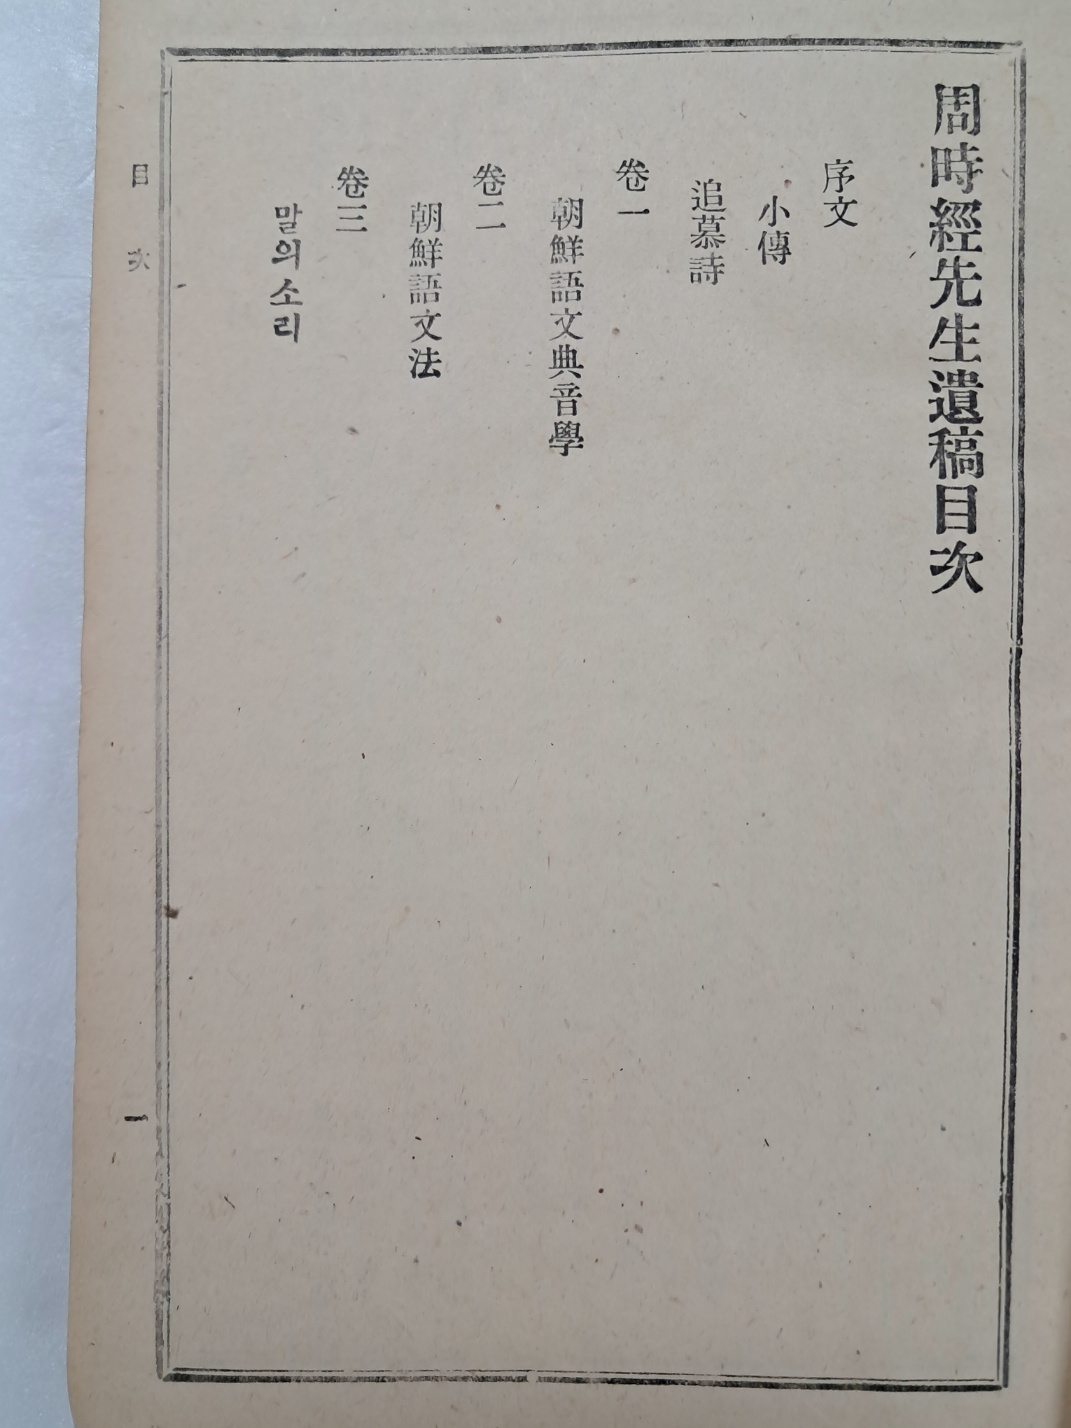 周時經先生遺稿目次
序文
小傳
追慕詩
卷一
朝鮮語文典音學
卷二
朝鮮語文法
卷三
말의소리
目次
一